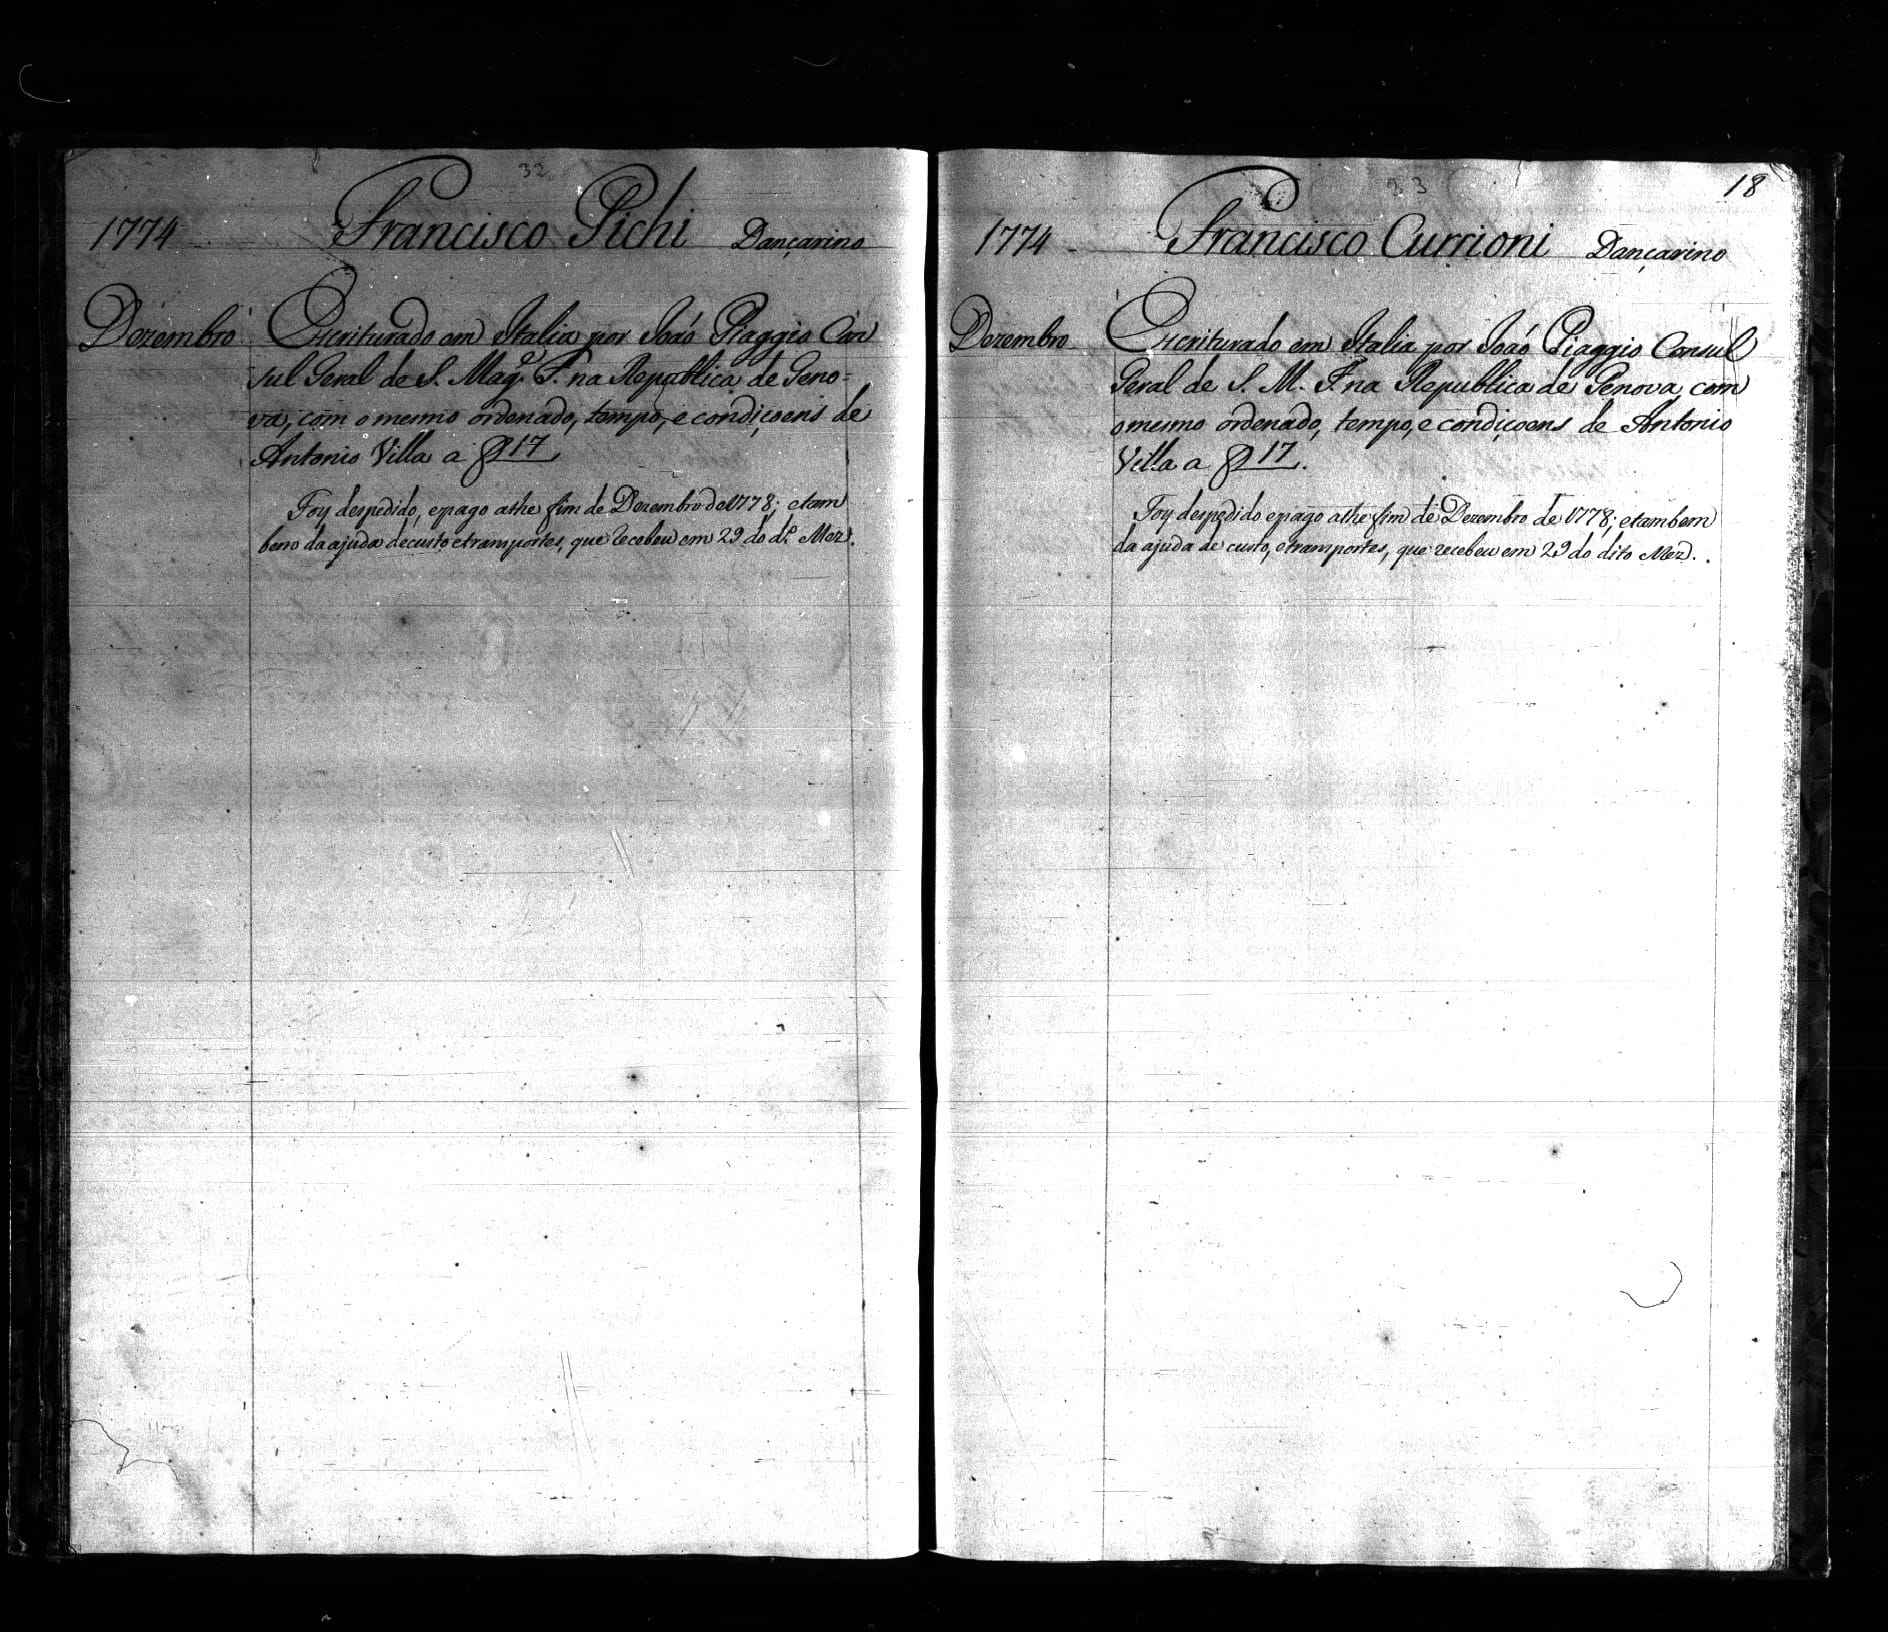 32
1774 Francisco Pichi Dançarino
Dezembro Escriturado em Italia por João Piaggio Con
sul Geral de S. Mag.e F. na Republica de Geno=
va, com o mesmo ordenado, tempo, e condiçoens de
Antonio Villa a f 17
Foy despedido, e pago athe fim de Dezembro de 1778; e tam
bem da ajuda de custo e transportes, que recebeu em 29 do d.o Mez.
33
18
1774 Francisco Currioni Dançarino
Dezembro Escriturado em Italia por João Piaggio Consul
Geral de S. M. F. na Republica de Genova, com
o mesmo ordenado, tempo, e condiçoens de Antonio
Villa a f 17.
Foy despedido e pago athe fim de Dezembro de 1778; e tambem
da ajuda de custo, e transportes, que recebeu em 29 do dito Mez.